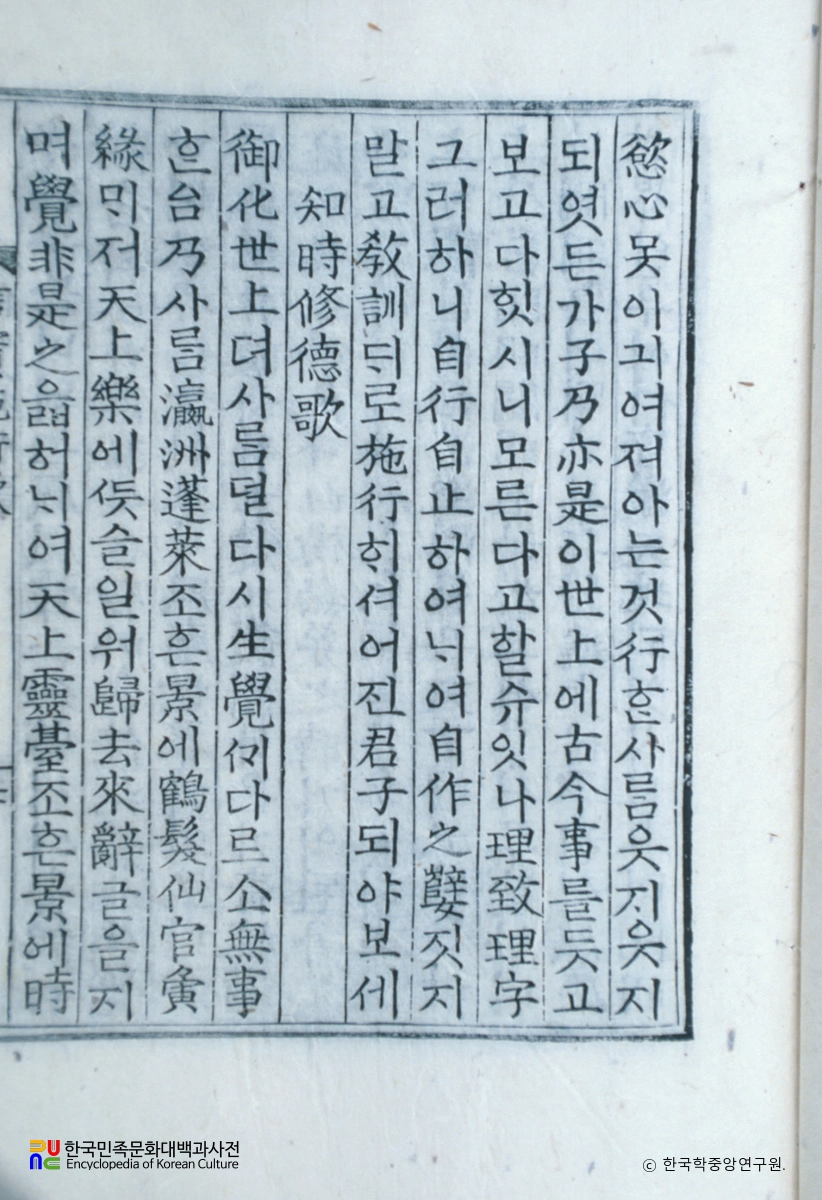 慾心못이긔여져아는것行흔사ᄅᆞᆷ읏지읏지
되엿든가子乃亦是이世上에古今事를듯고
보고다힛시니모른다고할슈잇나理致理字
그러하니自行自止하여ᄂᆡ여自作之孼짓지
말고敎訓ᄃᆡ로施行ᄒᆡ셔어진君子되야보세
知時修德歌
御化世上뎌사ᄅᆞᆷ덜다시生覺ᄒᆡ다르소無事
흔台乃사ᄅᆞᆷ瀛洲蓬萊조흔景에鶴髮仙官夤
緣ᄆᆡ저天上樂에뜻슬일워歸去來辭글을지
며覺非是之을럽허ᄂᆡ여天上靈臺조흔景에時
한국민족문화대백과사전
Encyclopedia of Korean Culture
© 한국학중앙연구원.